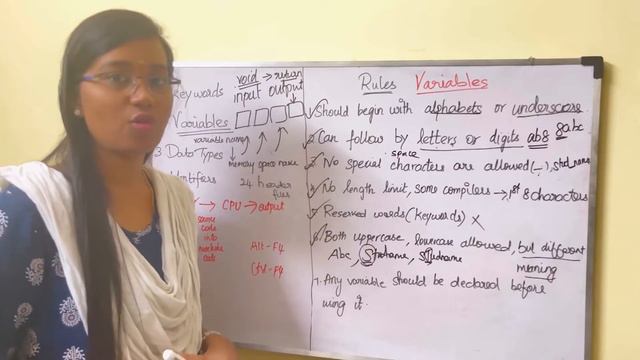 Keywords
void → return
input output
Variables
variable name
3. Data Types
memory space name
24. header
files
→ CPU → output
source
code
into
Alt-F9
Ctrl-F9
Rules Variables
Should begin with alphabets or underscore
Can follow by letters or digits ab8 8abc
space
No special characters are allowed (-), Std_name
No length limit, some compilers → 1st 8 characters
Reserved words (keywords) X
6. Both uppercase, lowercase allowed, but different
Abc, Studname, studname meaning
7. Any variable should be declared before
using it.